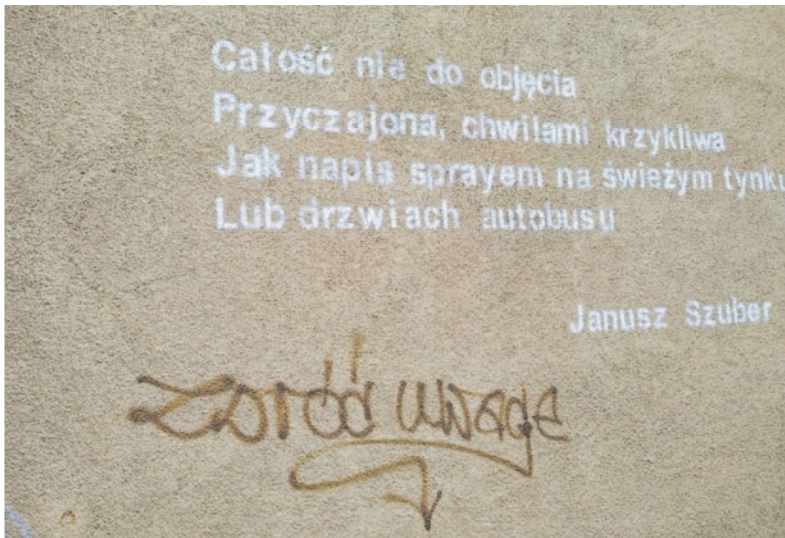 Całość nie do objęcia
Przyczajona, chwilami krzykliwa
Jak napis sprayem na świeżym tynku
Lub drzwiach autobusu
Janusz Szuber
Zwróć uwagę